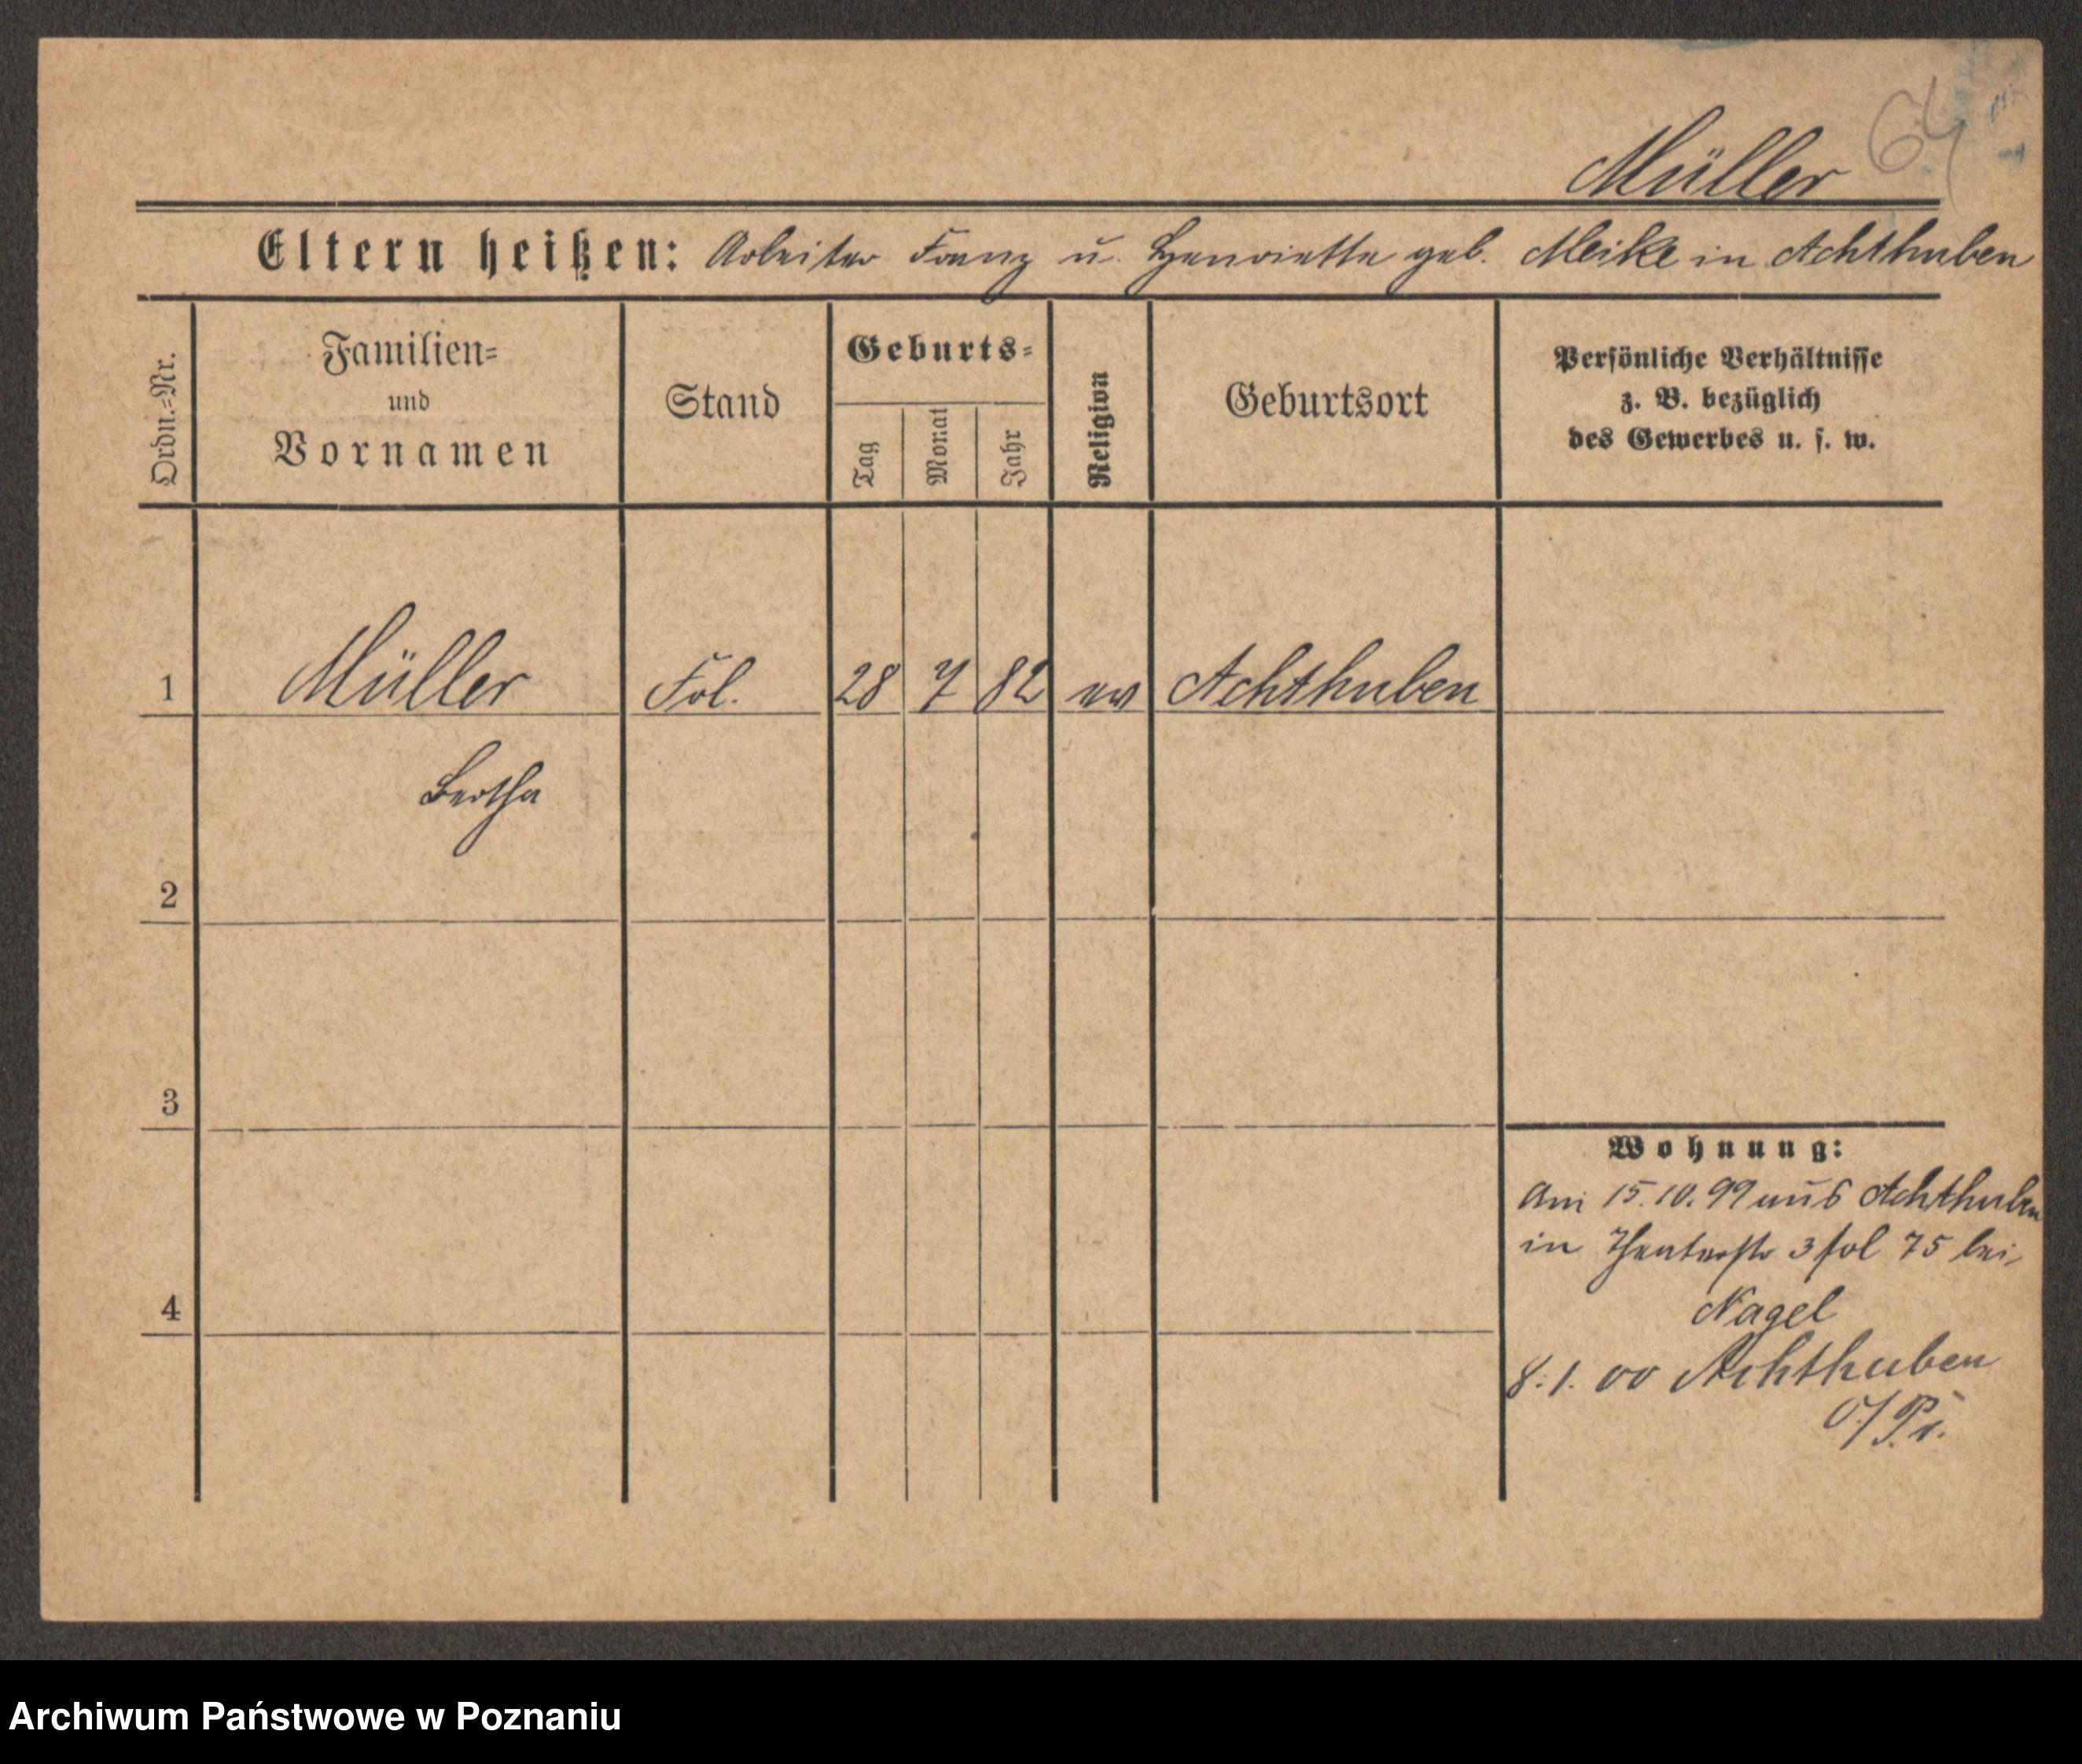 64
Müller
Eltern heißen: Arbeiter Franz u. Henriette geb. Meike in Achthuben
Ordn.=Nr.
Familien=
und
Vornamen
Stand
Geburts=
Tag
Monat
Jahr
Religion
Geburtsort
Persönliche Verhältnisse
z. B. bezüglich
des Gewerbes u. s. w.
1 Müller Frl. 28 7 82 ev Achthuben
Bertha
2
3
Wohnung:
Am 15.10.99 aus Achthuben
in Theaterstr 3 fol 75 bei
4
Nagel
8.1.00 Achthuben
O/Pr.
Archiwum Państwowe w Poznaniu